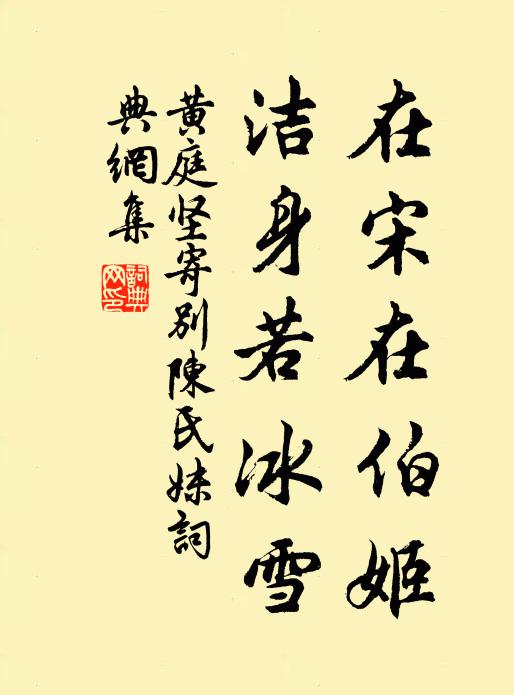 在宋在伯姬
洁身若冰雪
黄庭坚寄别陳氏妹詞
典網集
詞典网印